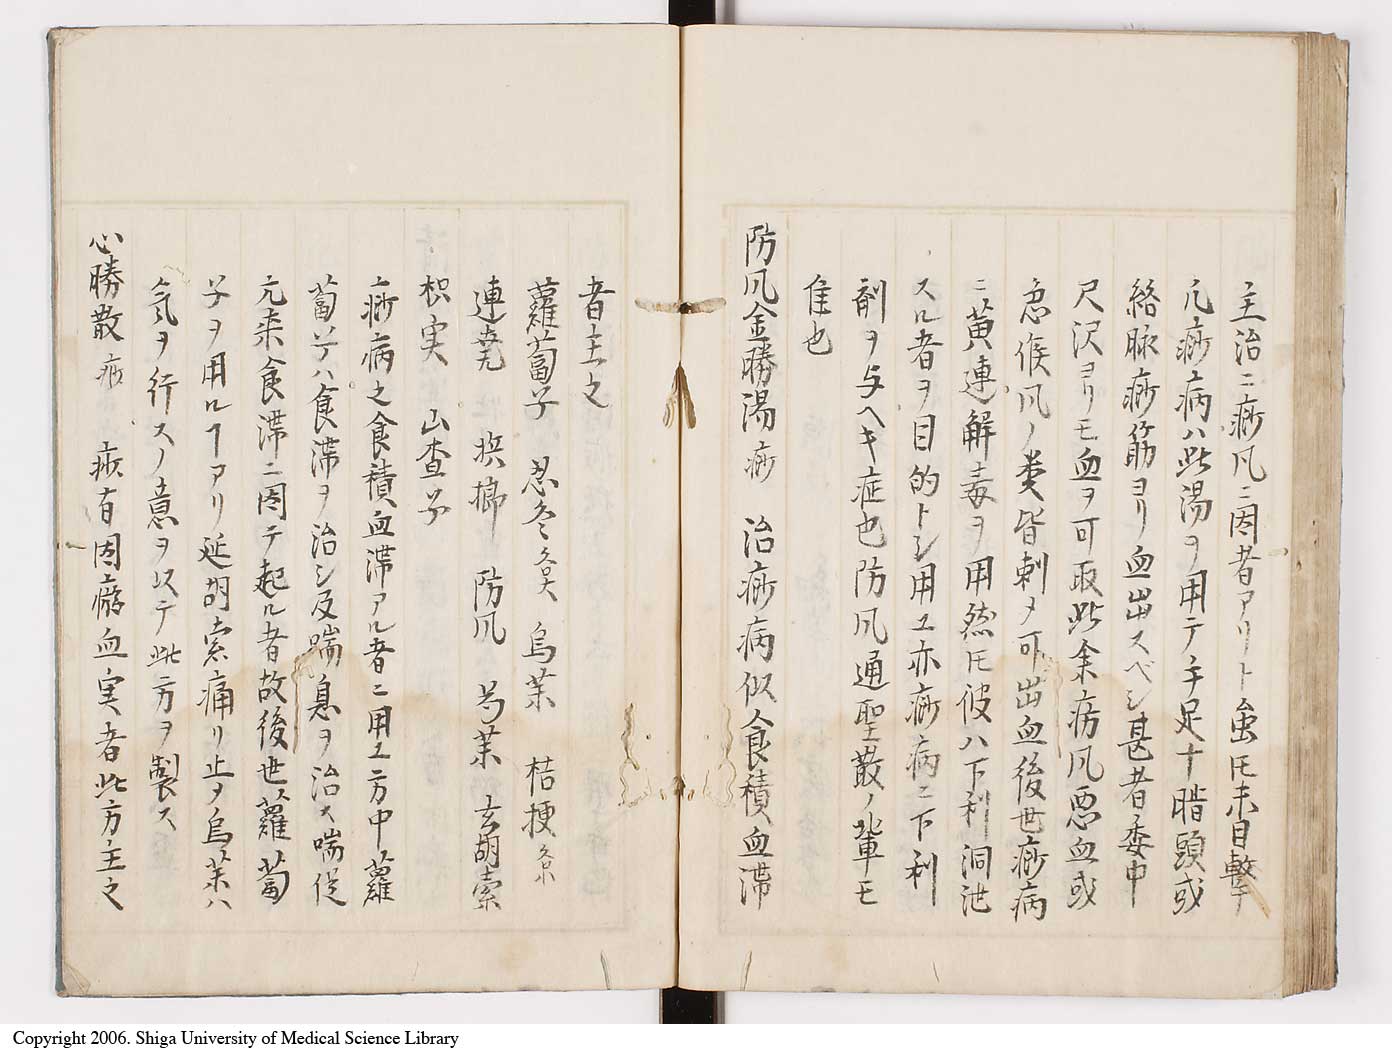 主治ニ痧凡ニ因者アリト虽𪜈未目撃
凡痧病ハ此湯ヲ用テ手足十指頭或
絡脉痧筋ヨリ血出スベシ甚者委中
尺沢ヨリモ血ヲ可取此余痬風悪血或
急喉風ノ类皆刺メ可出血後世痧病
ニ黄連解毒ヲ用然𪜈彼ハ下利洞泄
スル者ヲ目的トシ用ユ亦痧病ニ下利
剤ヲ与ヘキ症也防風通聖散ノ輩モ
隹也
防風金勝湯 痧 治痧病似食積血滞
者主之
蘿蔔子 忍冬 各癸 烏茱 桔梗 各尓
連堯 檳榔 防風 芎茱 玄胡索
枳実 山査子
痧病之食積血滞アル者ニ用ユ方中蘿
蔔子ハ食滞ヲ治シ及喘息ヲ治ス喘促
元来食滞ニ因テ起ル者故後世蘿蔔
子ヲ用ルヿアリ延胡索痛リ止ヲ烏茱ハ
気ヲ行スノ意ヲ以テ此方ヲ製ス
必勝散 痧 痧有因瘀血実者此方主之
Copyright 2006. Shiga University of Medical Science Library